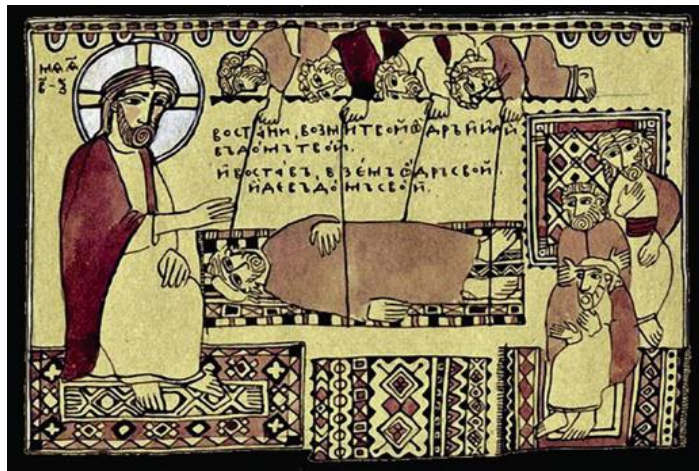 ВОСТАНИ, ВОЗМИ ТВОЙ ѠДРЪ И ИДИ
ВЪ ДОМЪ ТВОЙ.
И ВОСТАВЪ, ВЗЕМЪ ѠДРЪ СВОЙ
ИДЕ ВЪ ДОМЪ СВОЙ.